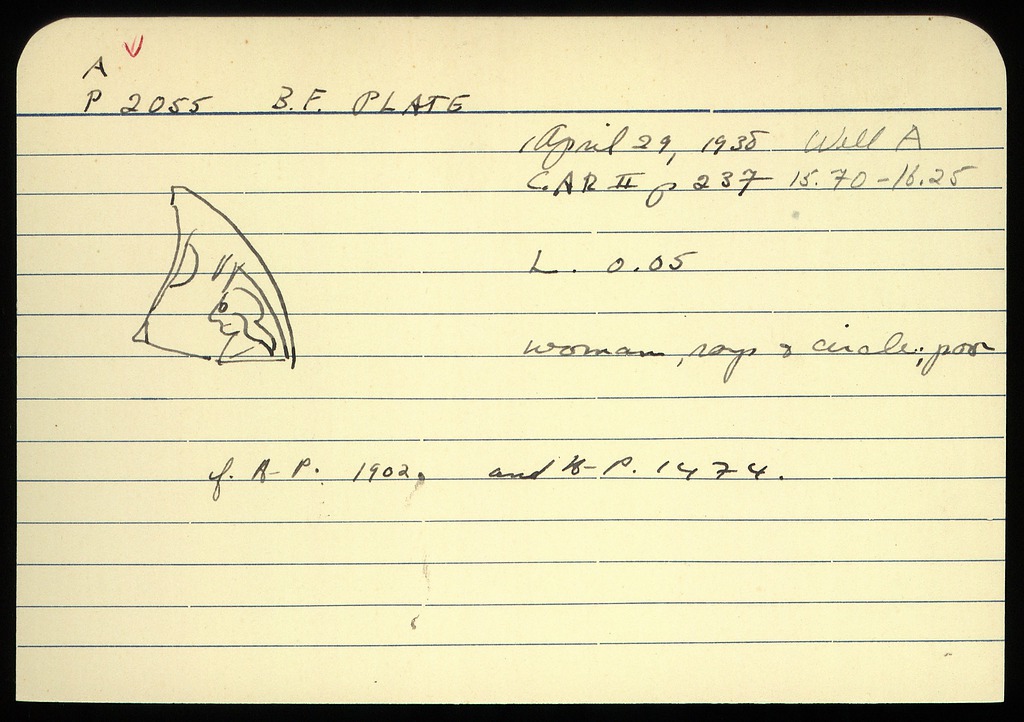 A
P 2055 B.F. PLATE
April 29, 1935 Well A
C.AR II p 237 15.70-16.25
L. 0.05
woman, rays & circle; poor
cf. A-P. 1902, and A-P. 1474.